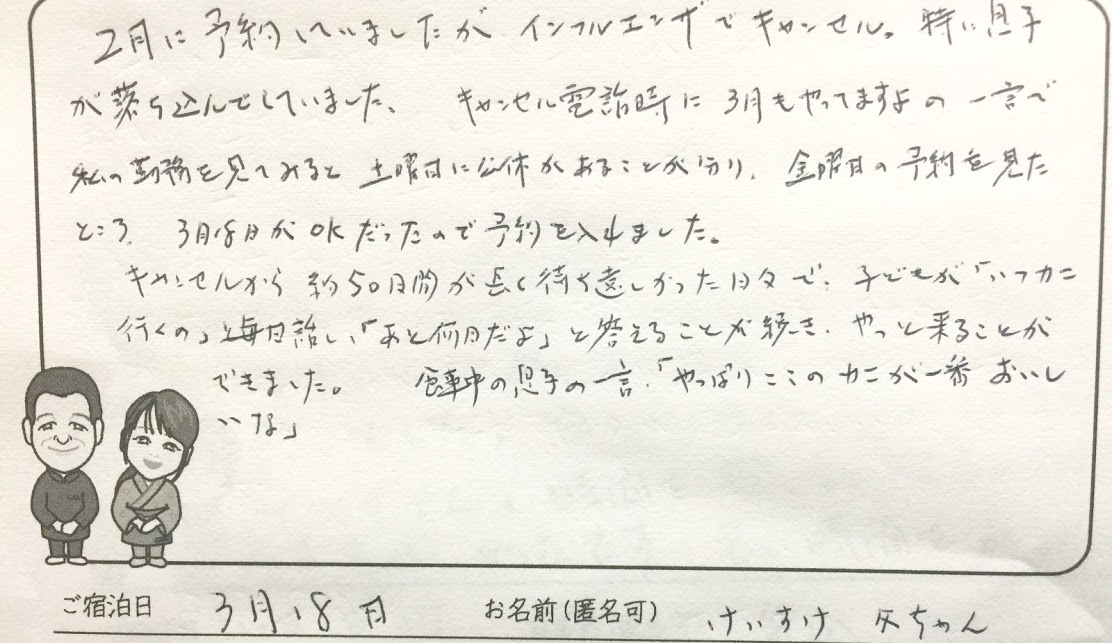 2月に予約していましたが インフルエンザでキャンセル。特に息子
が落ち込んでしていました、 キャンセル電話時に 3月もやってますよの一言で
私の勤務を見てみると 土曜日に公休があることが分り、金曜日の予約を見た
ところ、3月18日がOKだったので予約を入れました。
キャンセルから 約50日間が長く待ち遠しかった日々で、子どもが「いつカニ
行くの」と毎日話し、「あと何日だよ」と答えることが続き、やっと来ることが
できました。 食事中の息子の一言、「やっぱりここのカニが一番おいし
いな」
ご宿泊日 3月18日 お名前(匿名可) けいすけ 父ちゃん